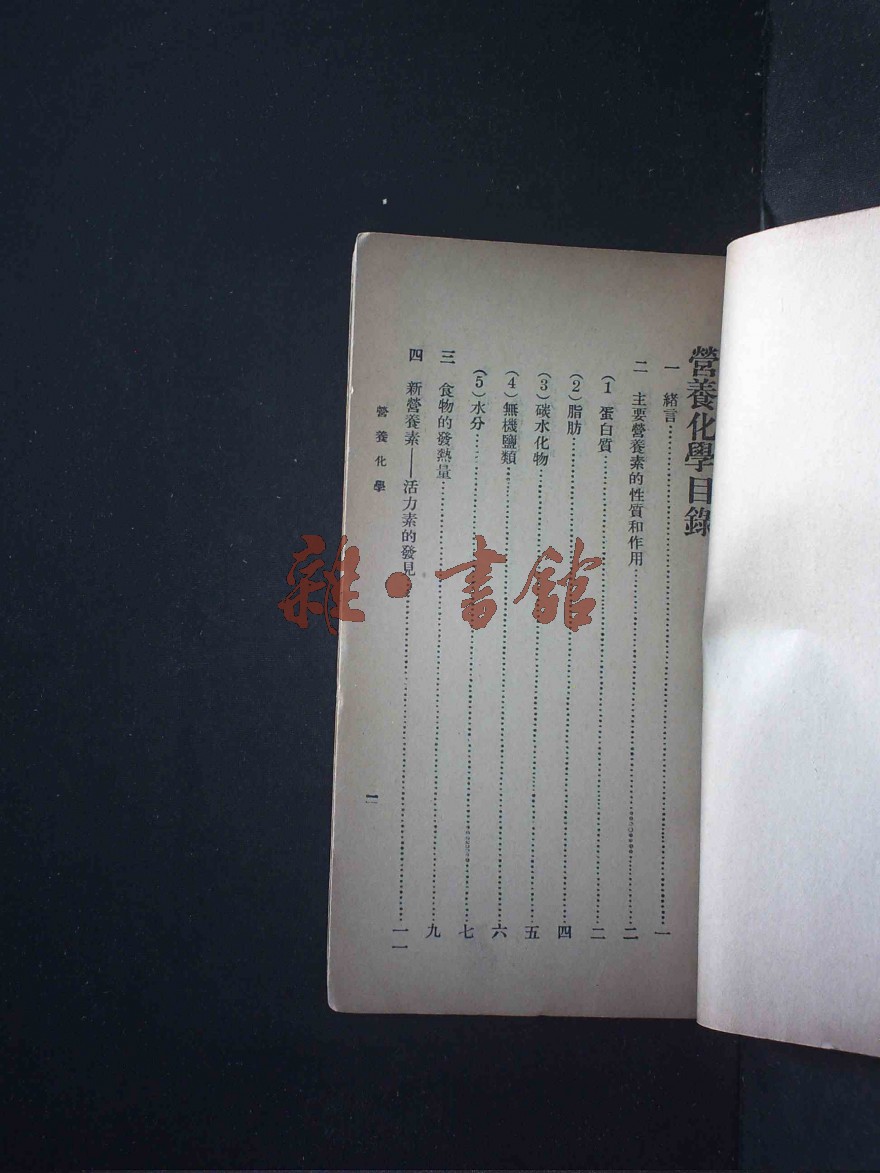 營養化學目錄
一 緒言⋯⋯一
二 主要營養素的性質和作用⋯⋯二
(1) 蛋白質⋯⋯二
(2) 脂肪⋯⋯四
(3) 碳水化物⋯⋯五
(4) 無機鹽類⋯⋯六
(5) 水分⋯⋯七
三 食物的發熱量⋯⋯九
四 新營養素——活力素的發見⋯⋯一一
營養化學
雜·書館